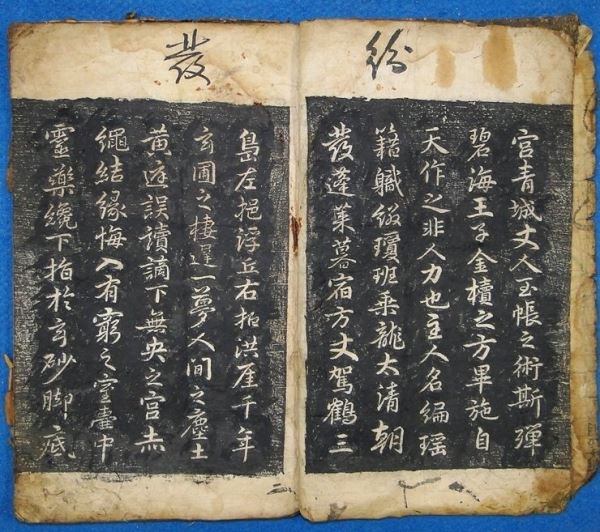 紛
宮青城丈人玉帳之術斯彈
碧海王子金櫝之方畢施自
天作之非人力也主人名編瑤
籍職綴瓊班乘龍太清朝
發蓬萊暮宿方丈駕鶴三
發
島左挹浮丘右拍洪厓千年
玄圃之棲遲一夢人間之塵土
黃庭誤讀謫下無央之宮赤
繩結緣悔入有窮之室壺中
靈藥纔下指於玄砂脚底
二